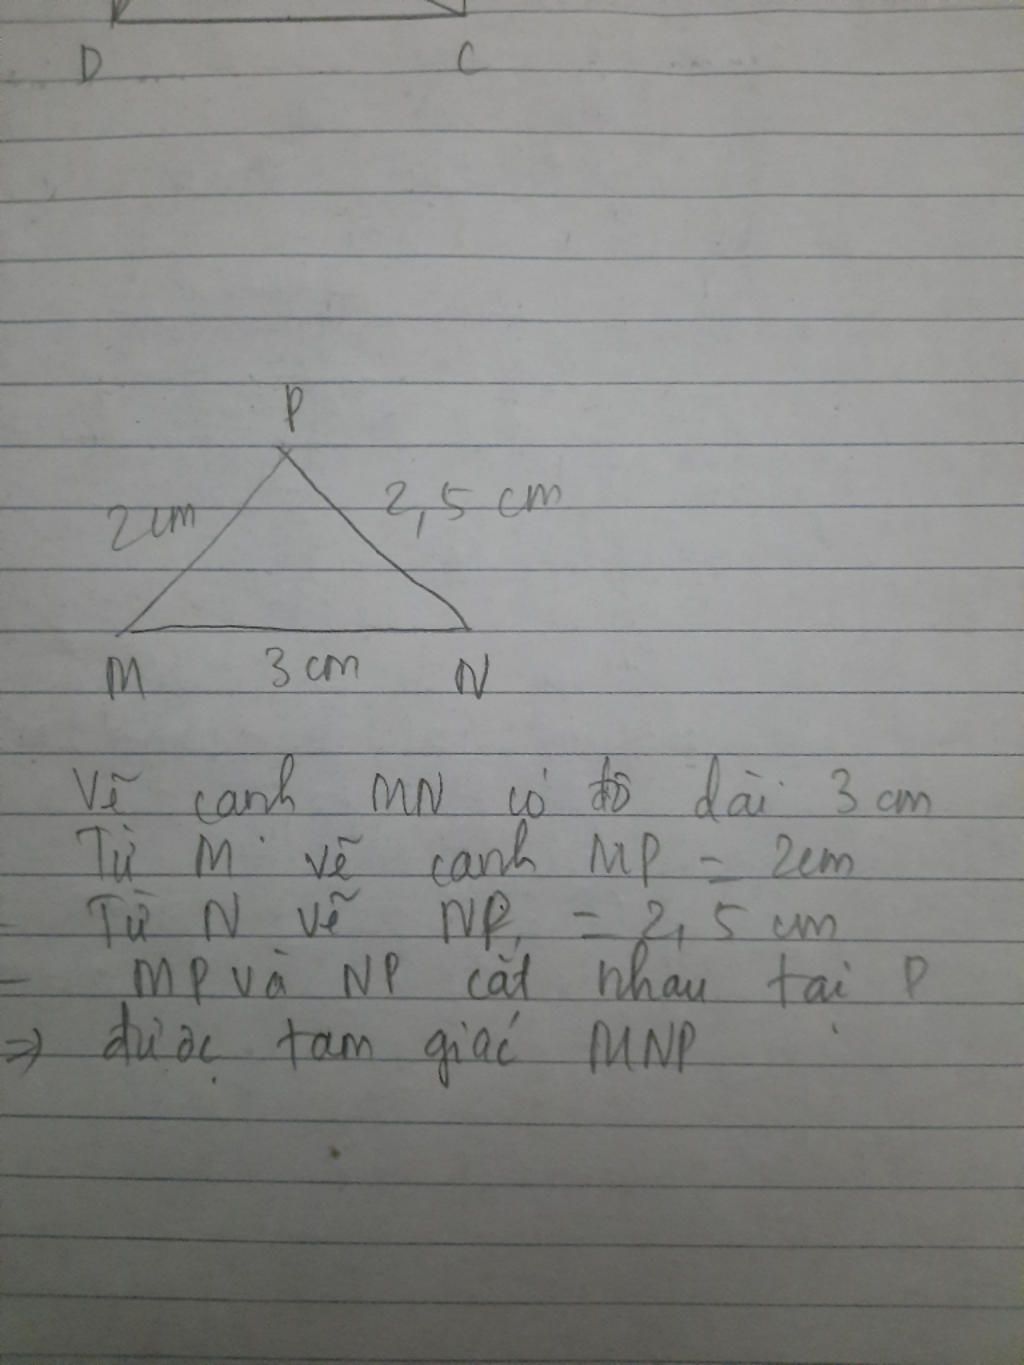 D C
P
2cm 2,5 cm
M 3 cm N
Vẽ cạnh MN có độ dài 3 cm
Từ M vẽ cạnh MP = 2cm
- Từ N vẽ NP = 2,5 cm
- MP và NP cắt nhau tại P
=> được tam giác MNP